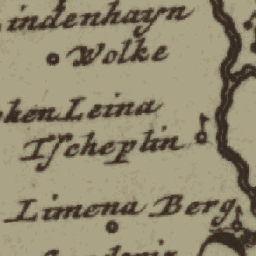 Lindenhayn
Wolke
ken Leina
Tſcheplin
Limena Berg